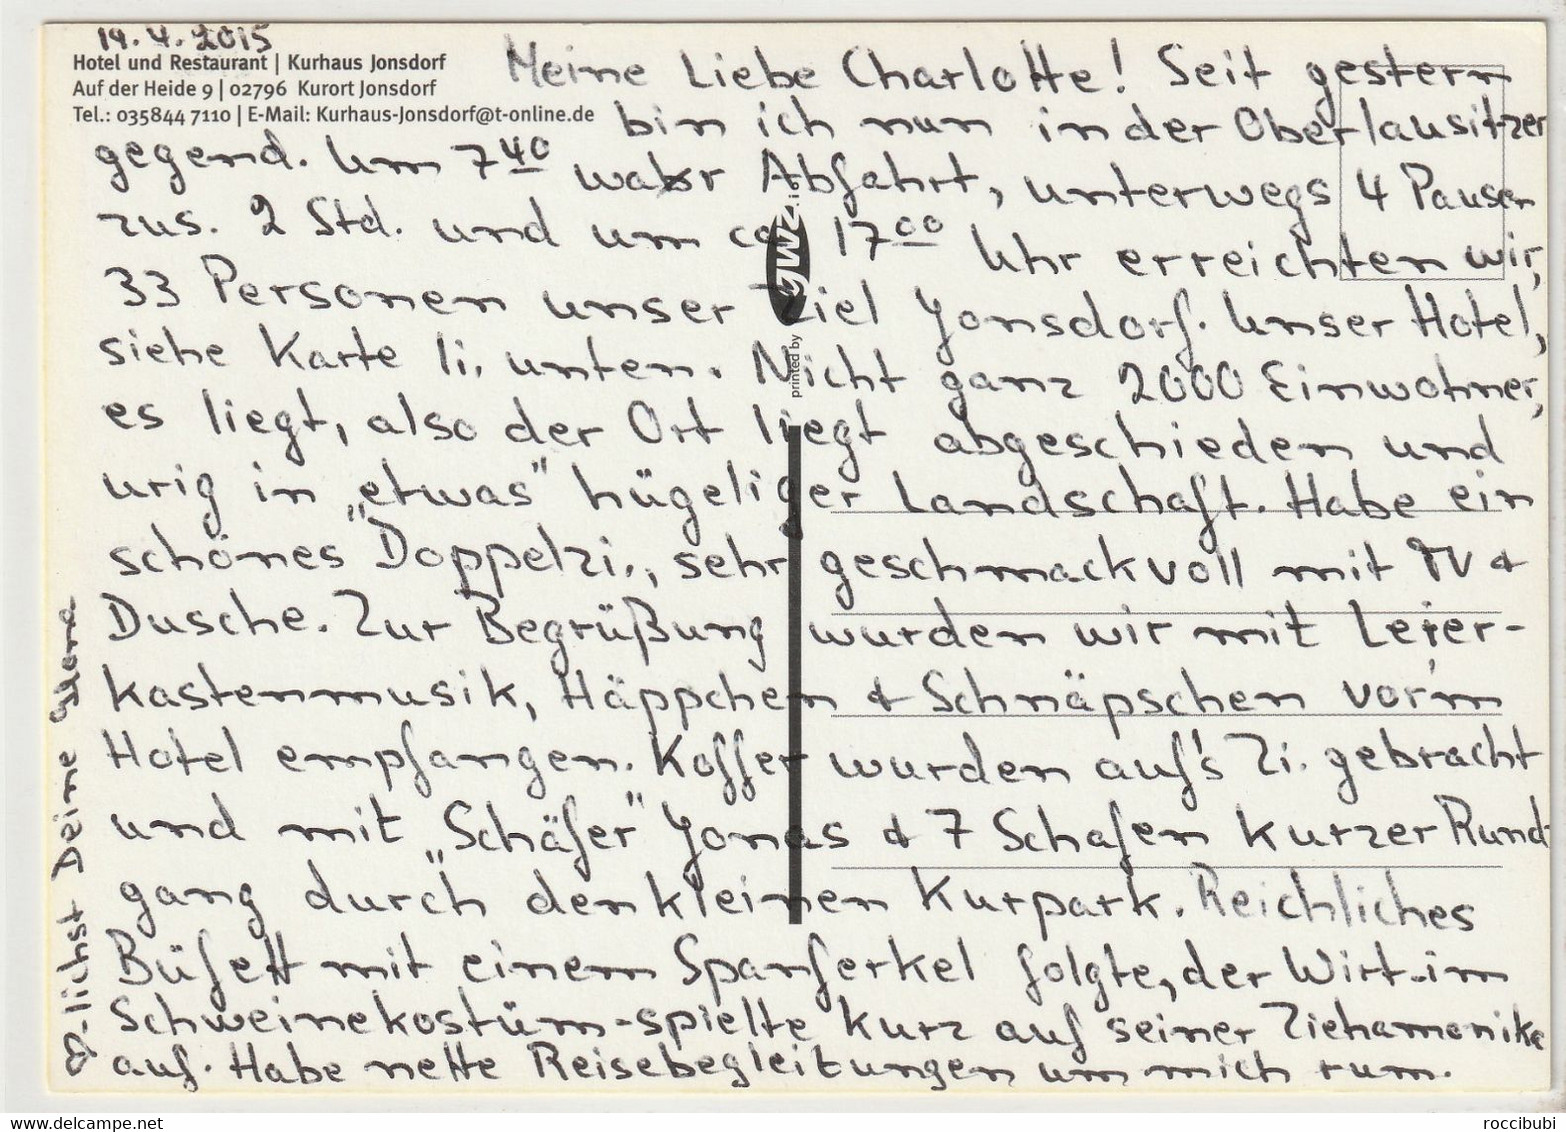 14.4.2015
Hotel und Restaurant | Kurhaus Jonsdorf
Auf der Heide 9 | 02796 Kurort Jonsdorf
Tel.: 035844 7110 | E-Mail: Kurhaus-Jonsdorf@t-online.de
Meine Liebe Charlotte! Seit gestern
bin ich nun in der Oberlausitzer
gegend. Um 7 40 war Abfahrt, unterwegs 4 Pausen
zus. 2 Std. und um ca 17 00 Uhr erreichten wir,
33 Personen unser Ziel Jonsdorf. Unser Hotel,
siehe Karte li. unten. Nicht ganz 2000 Einwohner,
es liegt, also der Ort liegt abgeschieden und
urig in „etwas" hügeliger Landschaft. Habe ein
schönes Doppelzi., sehr geschmackvoll mit TV &
Dusche. Zur Begrüßung wurden wir mit Leier-
kastenmusik, Häppchen & Schnäpschen vor'm
Hotel empfangen. Koffer wurden auf's Zi. gebracht
und mit „Schäfer" Jonas & 7 Schafen kurzer Rund-
gang durch den kleinen Kurpark. Reichliches
Büfett mit einem Spanferkel folgte, der Wirt-im
Schweinekostüm-spielte kurz auf seiner Ziehamonika
auf. Habe nette Reisebegleitungen um mich rum.
-lichst Deine
printed by
gwz.i
www.delcampe.net
roccibubi